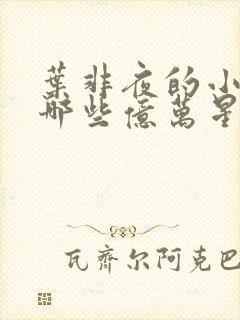 葉非夜的小
哪些億萬星
瓦齊尔阿克巴